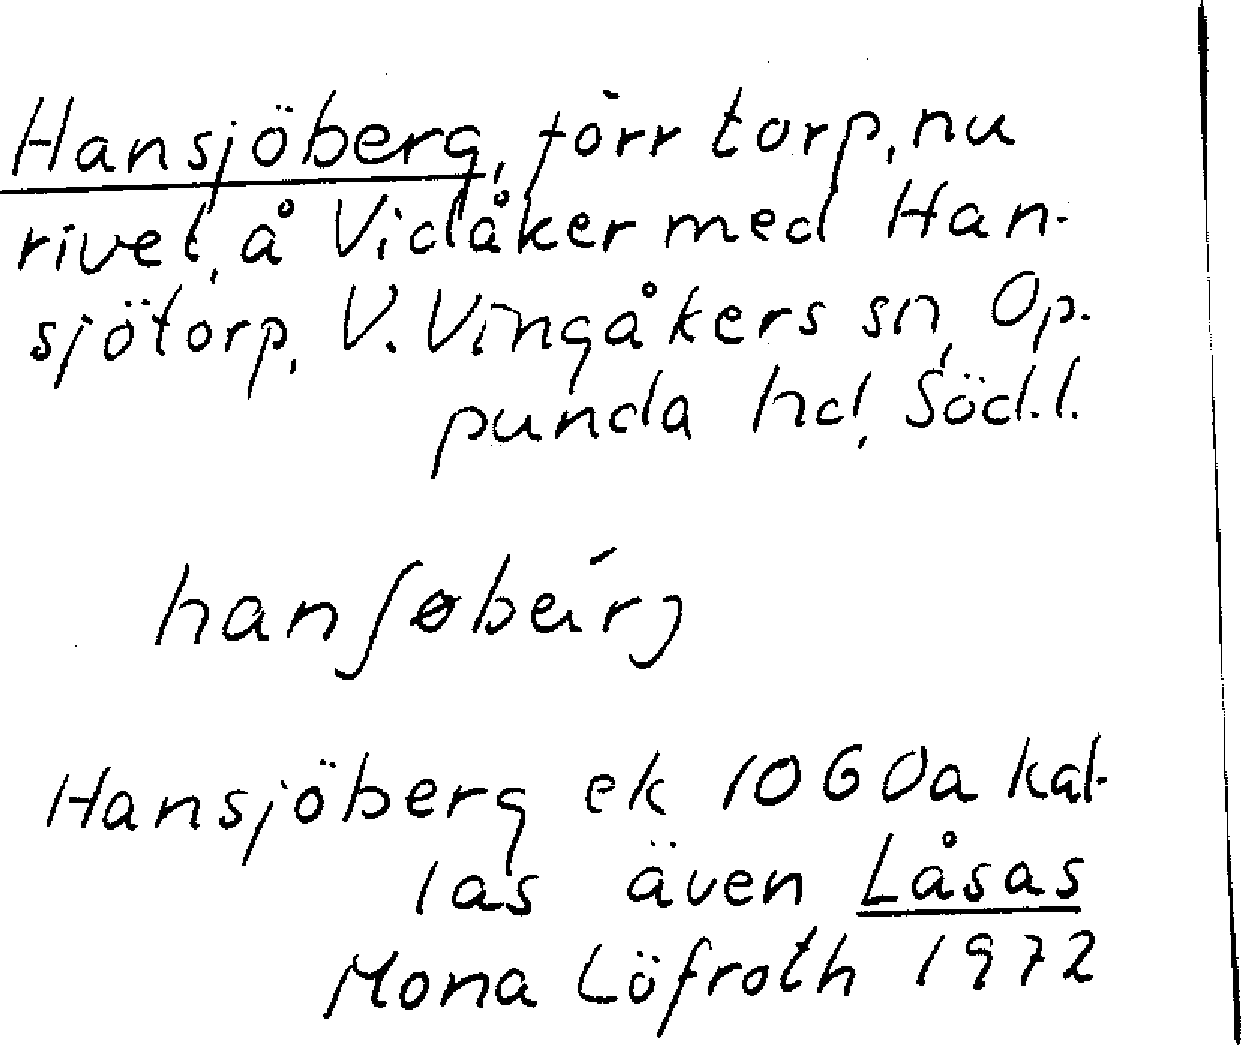 Hansjöberg, förr torp, nu
rivet, å Vidåker med Han-
sjötorp, V. Vingåkers sn, Op-
punda hd, Söd.l.
hanʃøbeírg
Hansjöberg ek 10G0a kal-
las även Låsas
Mona Löfroth 1972